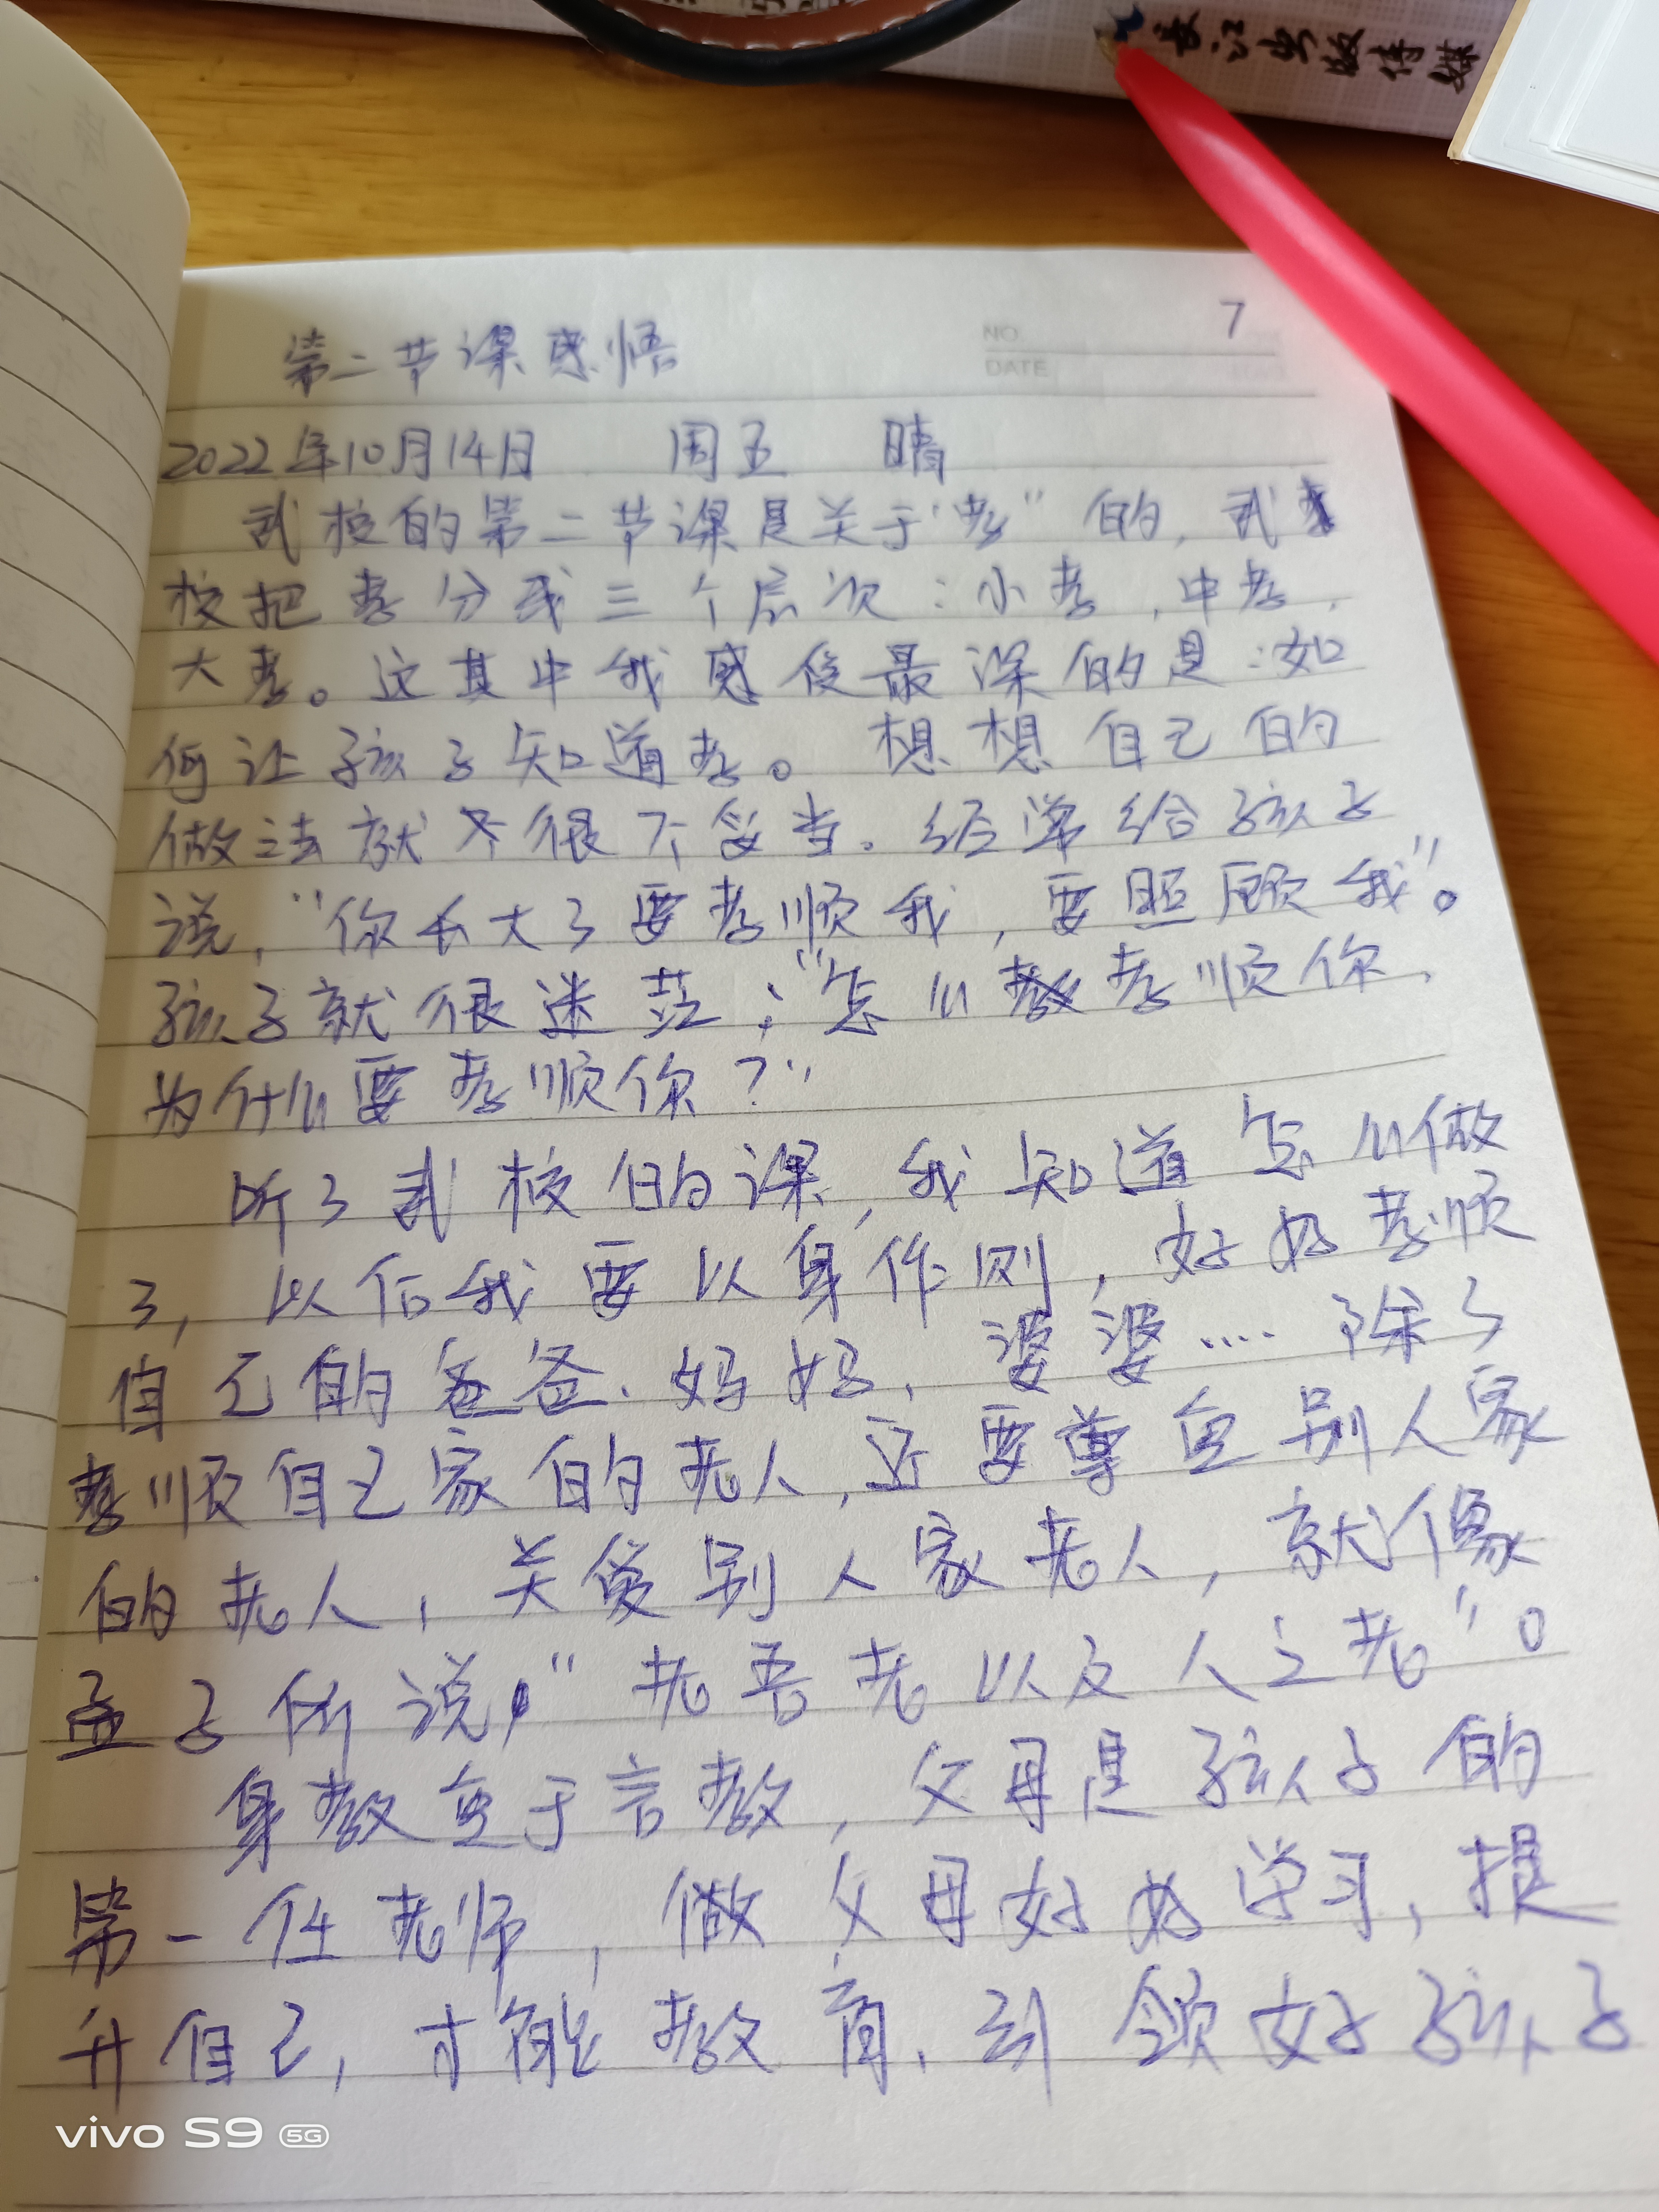 长江出版传媒
7
NO.
DATE
第二节课感悟
2022年10月14日 周五 晴
武校的第二节课是关于“孝”的，武
校把孝分成三个层次：小孝，中孝，
大孝。这其中我感役最深的是：如
何让孩子知道孝。想想自己的
做法就很不妥当。经常给孩子
说，“你长大了要孝顺我，要照顾我”。
孩子就很迷茫；“怎么孝顺你，
为什么要孝顺你？”
听了武校的课，我知道怎么做
了，以后我要以身作则，好好孝顺
自己的爸爸、妈妈、婆婆.... 除了
孝顺自己家的老人，还要尊重别人家
的老人，关爱别人家老人，就像
孟子所说，“老吾老以及人之老”。
身教重于言教，父母是孩子的
第一任老师，做父母好好学习，提
升自己，才能教育、引领好孩子
vivo S9 5G